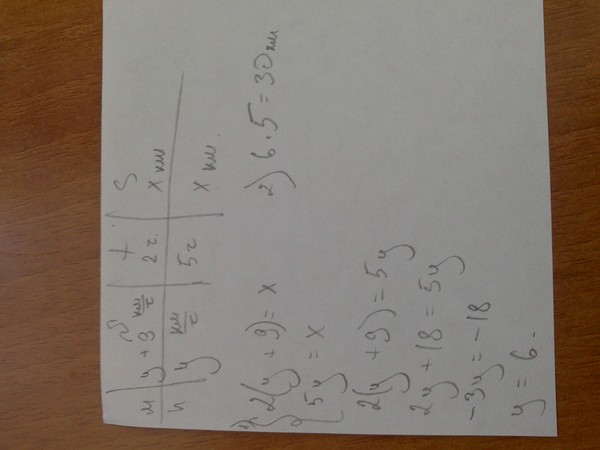 v t S
м y + 9 км/ч 2 ч. x км
п y км/ч 5 ч x км.
1) { 2(y + 9) = x
5y = x
2(y + 9) = 5y
2y + 18 = 5y
-3y = -18
y = 6.
2) 6 · 5 = 30 км